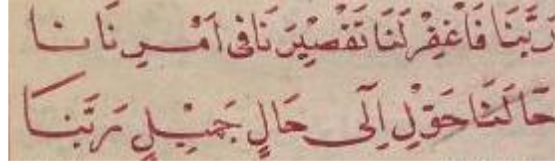 رَبَّنَا فَاغْفِرْ لَنَا تَقْصِيْرَنَا فِى اَمْرِنَا نَا
حَالَنَا حَوِّلْ اِلَى حَالٍ جَمِيْلٍ رَبَّنَا